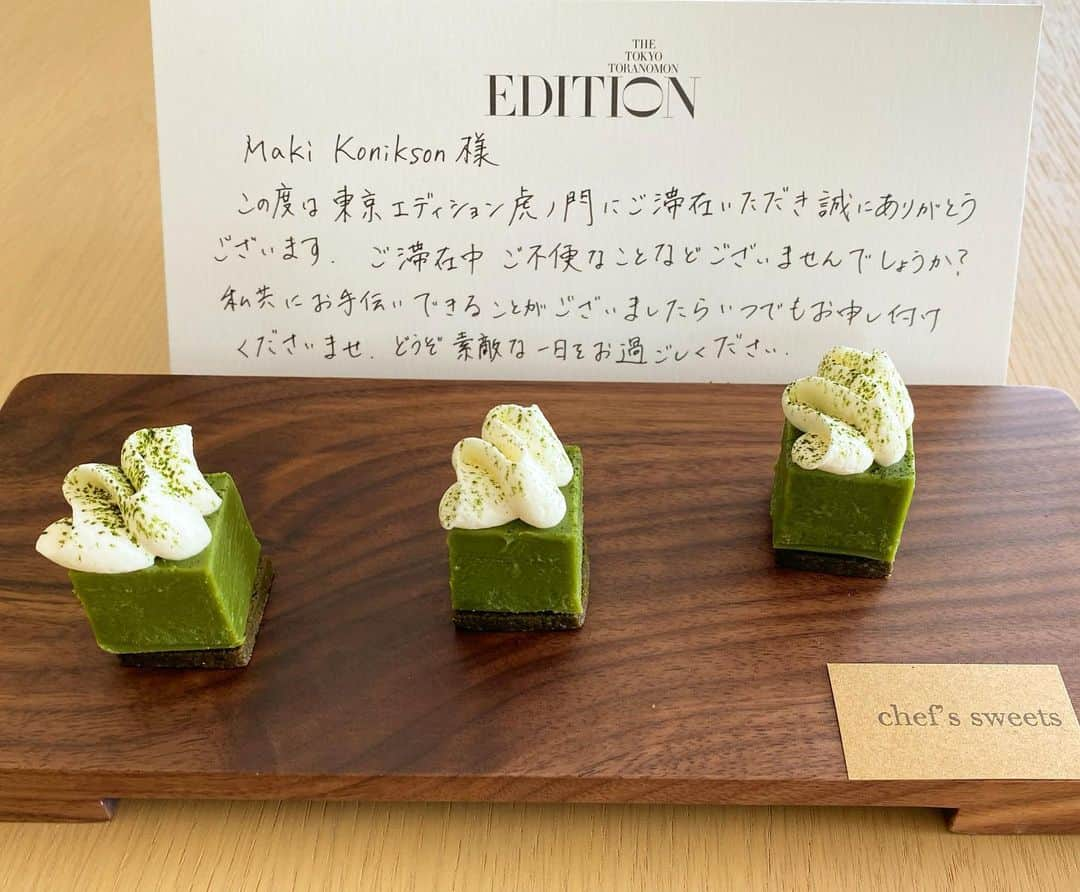 THE
TOKYO
TORANOMON
EDITION
Maki Konikson 様
この度は東京エディション虎ノ門にご滞在いただき誠にありがとう
ございます. ご滞在中 ご不便なことなどございませんでしょうか?
私共にお手伝いできることがございましたらいつでもお申し付け
くださいませ. どうぞ素敵な一日をお過ごしください.
chef's sweets